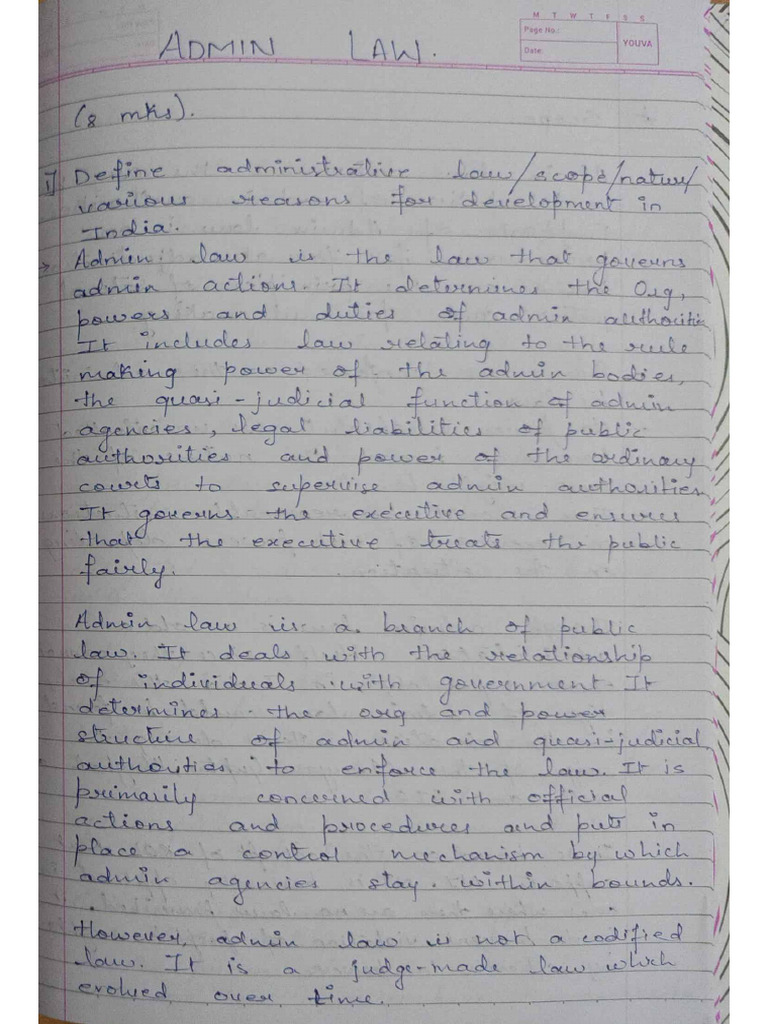 M T W T F S S
Page No.:
Date:
YOUVA
ADMIN LAW.
(8 mks).
1) Define administrative law/scope/nature/
various reasons for development in
India.
Admin law is the law that governs
admin actions. It determines the Org,
powers and duties of admin authorities
It includes law relating to the rule
making power of the admin bodies,
the quasi-judicial function of admin
agencies, legal liabilities of public
authorities and power of the ordinary
courts to supervise admin authorities
It governs the executive and ensures
that the executive treats the public
fairly.
Admin law is a branch of public
law. It deals with the relationship
of individuals with government. It
determines the org and power
structure of admin and quasi-judicial
authorities to enforce the law. It is
primarily concerned with official
actions and procedures and puts in
place a control mechanism by which
admin agencies stay within bounds.
However, admin law is not a codified
law. It is a judge-made law which
evolved over time.